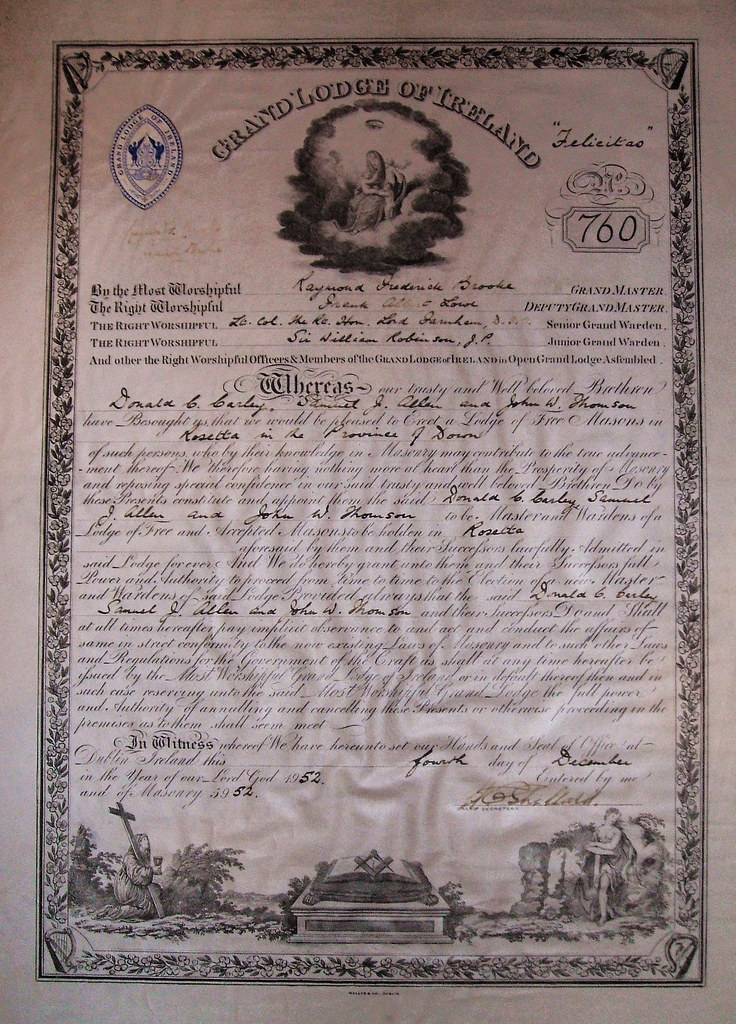 GRAND LODGE OF IRELAND
GRAND LODGE OF IRELAND
"Felicitas"
No.
760
By the Most Worshipful Raymond Frederick Brooke GRAND MASTER.
The Right Worshipful Frank Lowe DEPUTY GRAND MASTER.
THE RIGHT WORSHIPFUL Lt. Col. the Rt. Hon. Lord Farnham, D.S.O. Senior Grand Warden.
THE RIGHT WORSHIPFUL Sir William Robinson, J.P. Junior Grand Warden.
And other the Right Worshipful Officers & Members of the GRAND LODGE of IRELAND in Open Grand Lodge Assembled.
Whereas our trusty and Well beloved Brethren
Donald C. Carley, Samuel J. Allen and John W. Thomson
have Besought us that we would be pleased to Erect a Lodge of Free Masons in
Rosetta in the Province of Down
of such persons, who by their knowledge in Masonry may contribute to the true advance-
-ment thereof. We therefore having nothing more at heart than the Prosperity of Masonry
and reposing special confidence in our said trusty and well beloved Brethren Do by
these Presents constitute and appoint them the said Donald C. Carley, Samuel
J. Allen and John W. Thomson to be Master and Wardens of a
Lodge of Free and Accepted Masons to be holden in Rosetta
aforesaid by them and their Successors lawfully Admitted in
said Lodge for ever And We do hereby grant unto them and their Successors full
Power and Authority to proceed from time to time to the Election of a new Master
and Wardens of said Lodge Provided always that the said Donald C. Carley
Samuel J. Allen and John W. Thomson and their Successors Do and Shall
at all times hereafter pay implicit observance to and act and conduct the affairs of
same in strict conformity to the now existing Laws of Masonry and to such other Laws
and Regulations for the Government of the Craft as shall at any time hereafter be
issued by the Most Worshipful Grand Lodge of Ireland or in default thereof then and in
such case reserving unto the said Most Worshipful Grand Lodge the full power
and Authority of annulling and cancelling these Presents or otherwise proceeding in the
premises as to them shall seem meet
In Witness whereof We have hereunto set our Hands and Seal of Office at
Dublin Ireland this fourth day of December
in the Year of our Lord God 1952. Entered by me
and of Masonry 5952.
GRAND SECRETARY